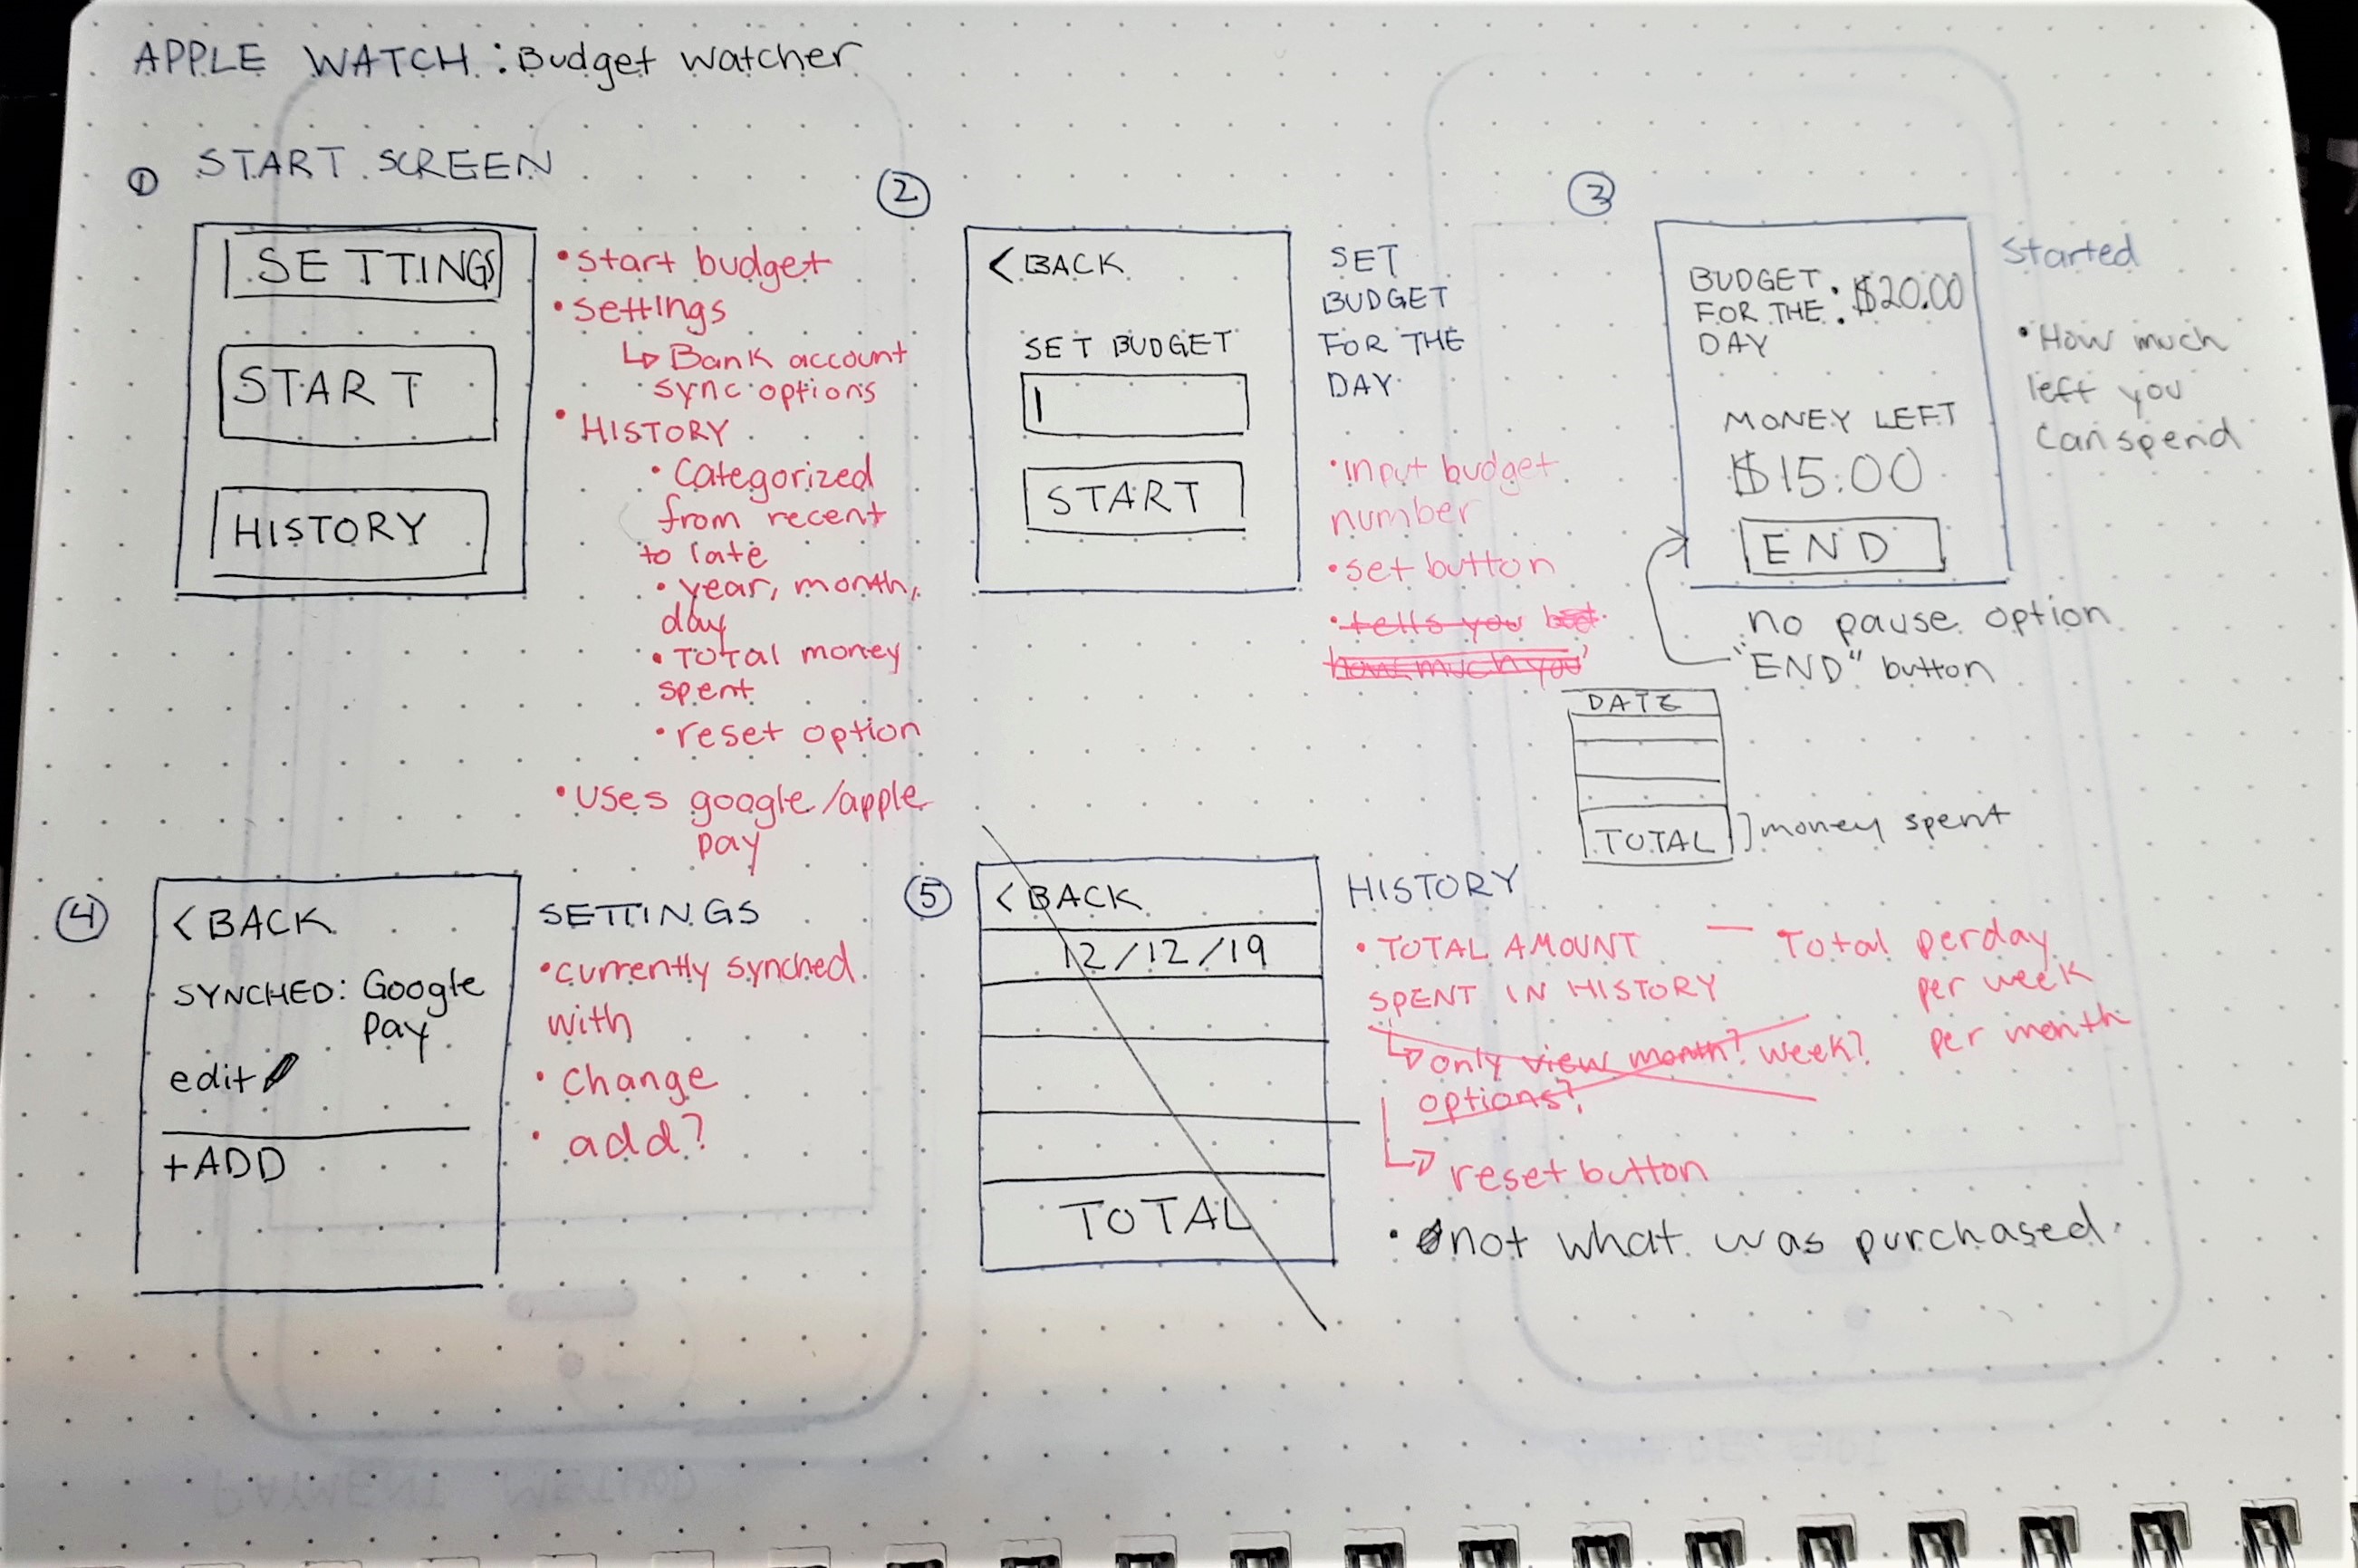 APPLE WATCH : Budget Watcher
① START SCREEN
SETTINGS
START
HISTORY
• start budget
• settings
↳ Bank account
sync options
• HISTORY
• Categorized
from recent
to late
• year, month,
day
• TOTAL money
spent
• reset option
• uses google/apple
pay
②
< BACK
SET BUDGET
START
SET
BUDGET
FOR THE
DAY
• input budget
number
• set button
• tells you
how much you
③
BUDGET
FOR THE : $20.00
DAY
MONEY LEFT
$15.00
END
Started
• How much
left you
can spend
no pause option
"END" button
DATE
TOTAL
money spent
④
< BACK
SYNCHED: Google
Pay
edit
+ADD
SETTINGS
• currently synched
with
• change
• add?
⑤
< BACK
12/12/19
TOTAL
HISTORY
• TOTAL AMOUNT — Total per day
SPENT IN HISTORY per week
↳ only view month? week? per month
options?
↳ reset button
• not what was purchased.